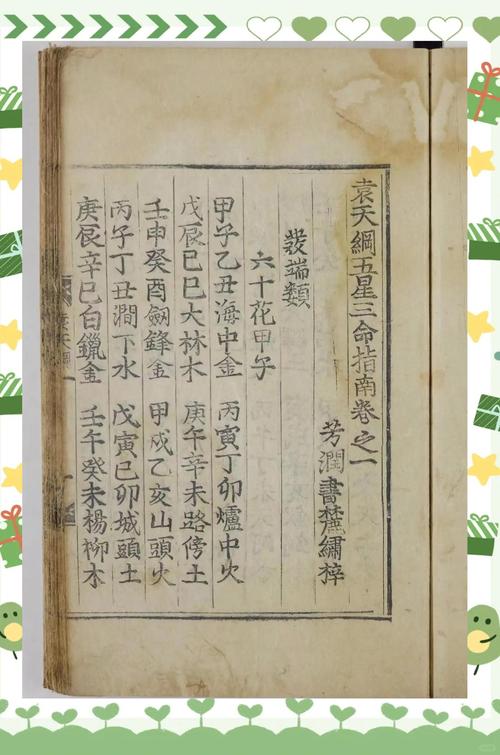 袁天綱五星三命指南卷之一
芳澗書麓繡梓
發端類
六十花甲子
甲子乙丑海中金 丙寅丁卯爐中火
戊辰巳巳大林木 庚午辛未路傍土
壬申癸酉劒鋒金 甲戌乙亥山頭火
丙子丁丑澗下水 戊寅巳卯城頭土
庚辰辛巳白鑞金 壬午癸未楊柳木